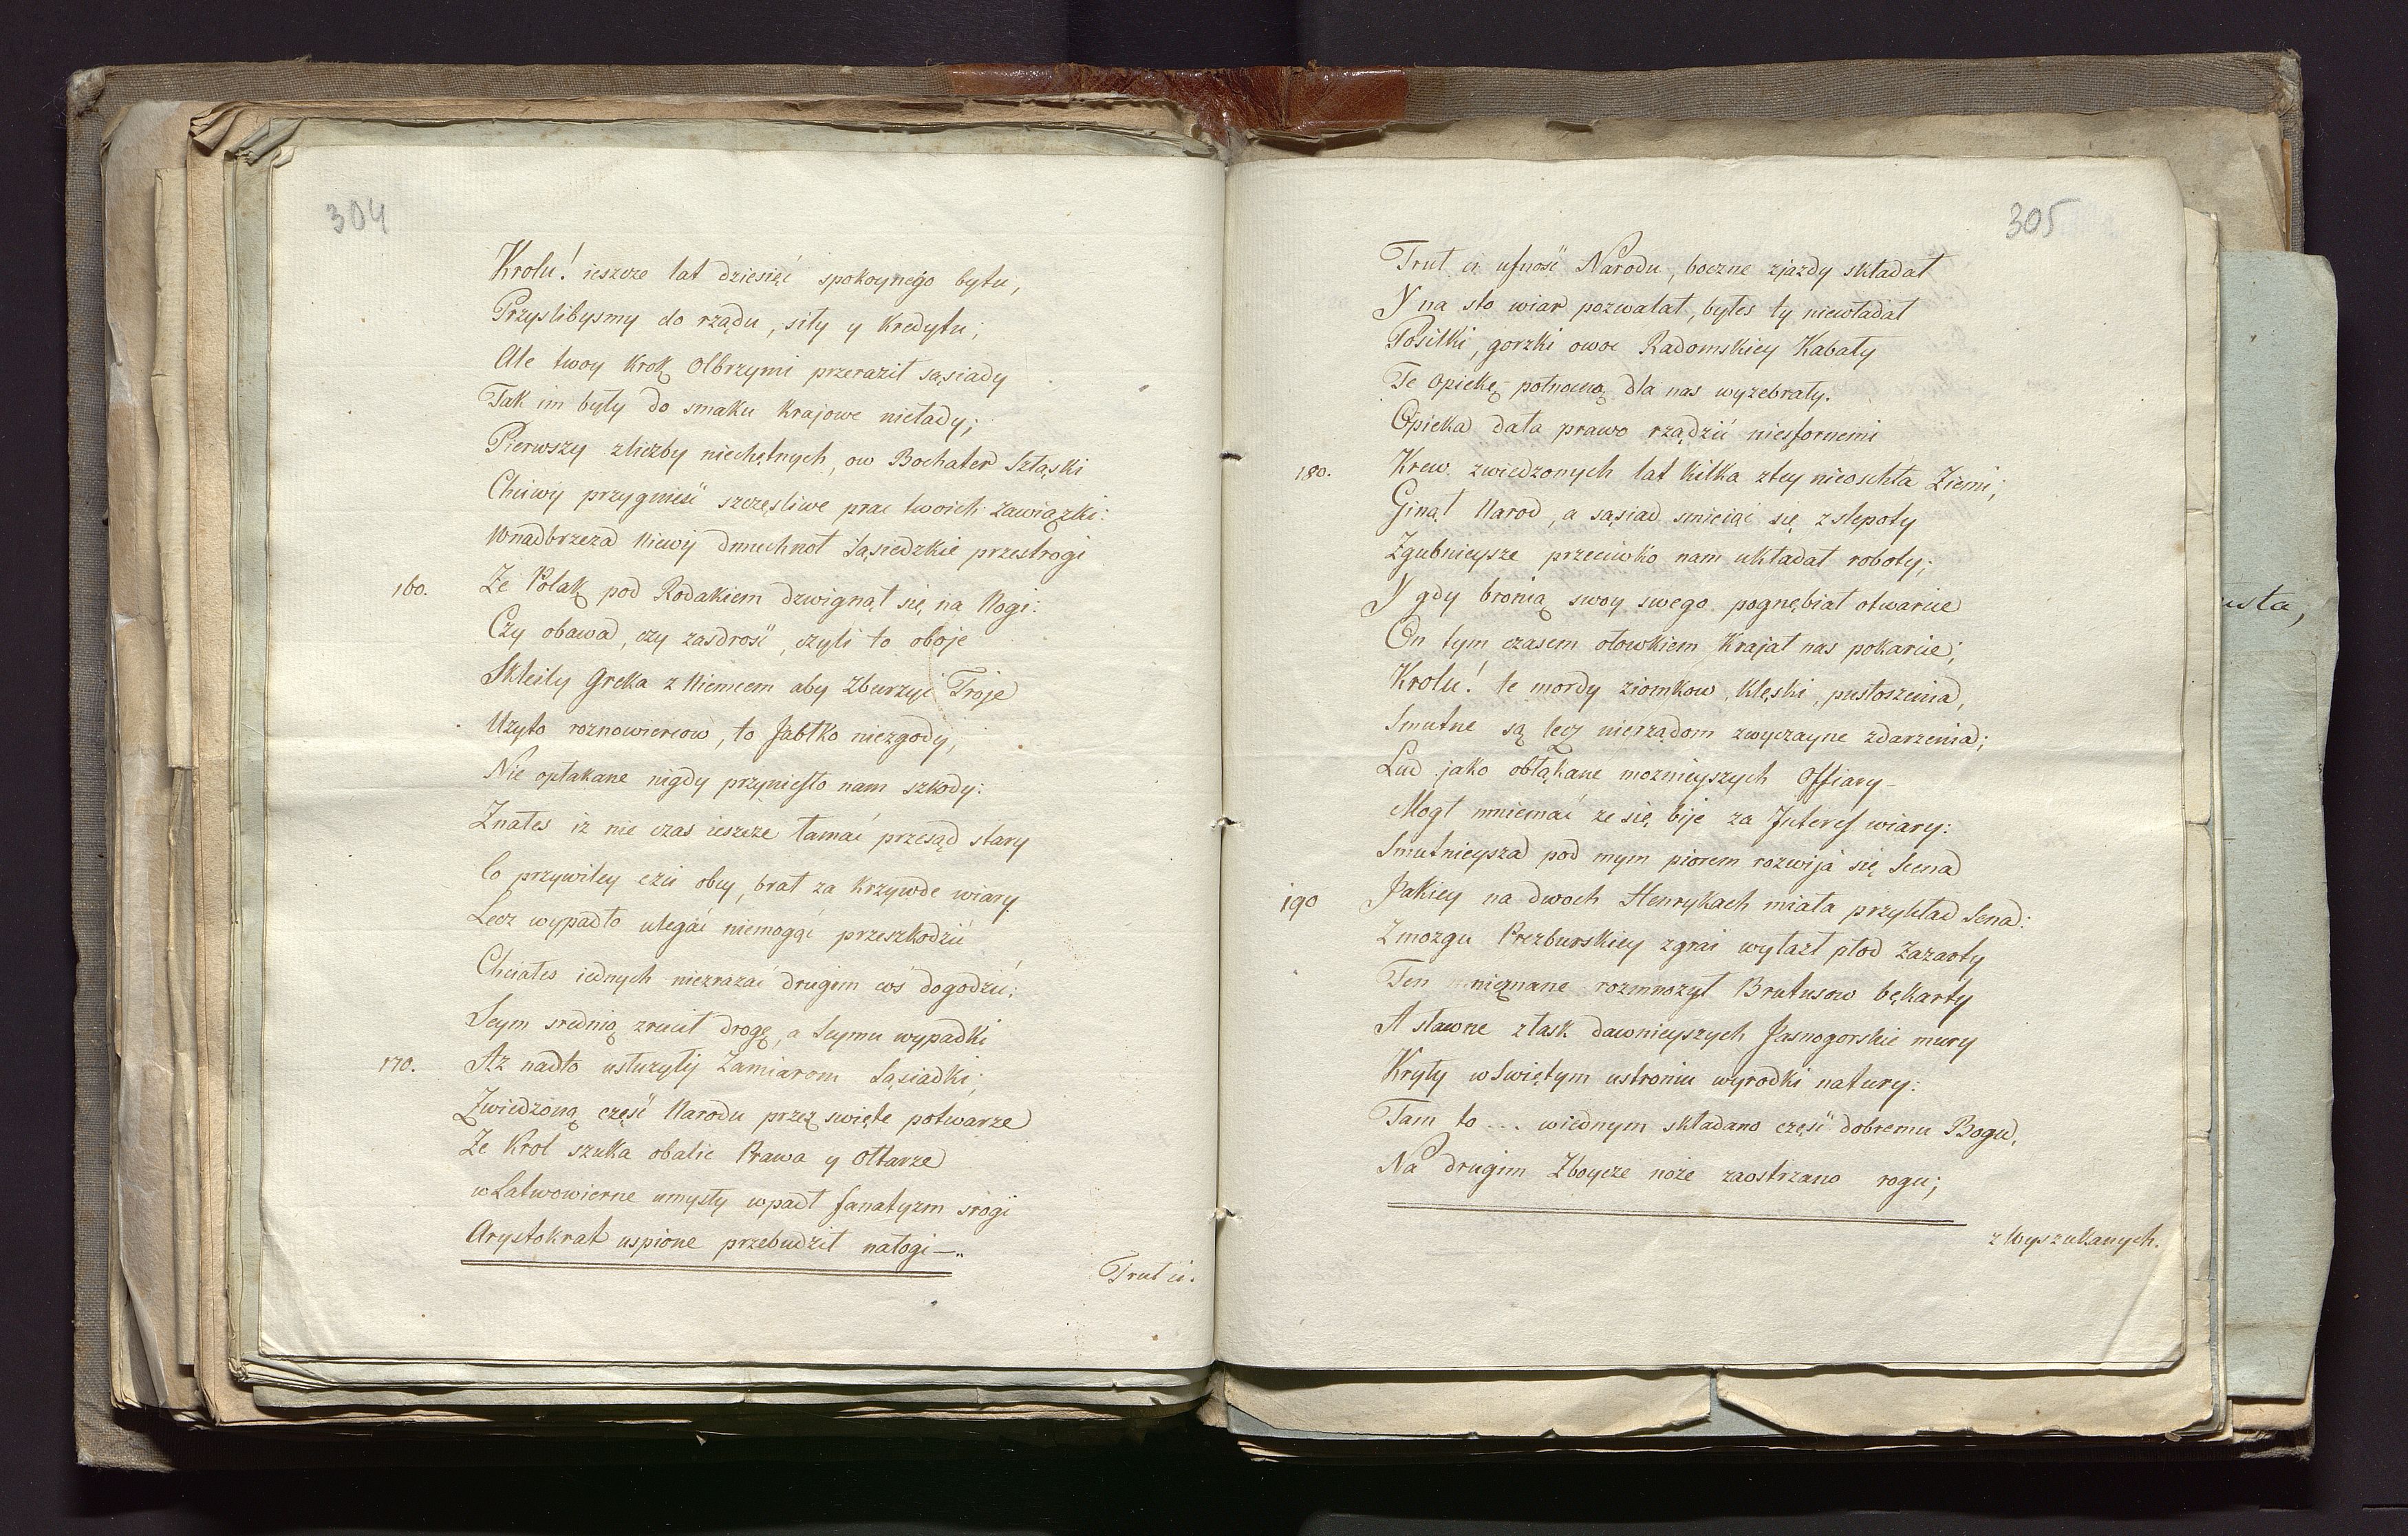 304
Krolu! ieszcze lat dziesięć spokoynego bytu,
Przyslibysmy do rządu, siły y Kredytu;
Ale twoy Krok Olbrzymi przeraził sąsiady
Tak im były do smaku Krajowe niełady;
Pierwszy zliczby niechętnych, ow Bochater Szląski
Chciwy przygnieść szczęsliwe prac twoich Zawiązki:
Wnadbrzeża Niewy dmuchnoł Sąsiedzkie przestrogi
160. Że Polak pod Rodakiem dzwignął się na Nogi:
Czy obawa, czy zasdrość, czyli to oboje
Skleiły Greka z Niemcem aby Zburzyć Troje
Użyto roznowiercow, to Jabłko niezgody,
Nie opłakane nigdy przyniesło nam szkody:
Znałes iż nie czas ieszcze łamać przesąd stary
Co przywiley czci obcy, brał za Krzywde wiary
Lecz wypadło ulegać niemogąc przeszkodzić
Chciałes iednych niezrażać drugim coś dogodzić:
Seym srednią zrucił drogę, a Seymu wypadki
170. Aż nadto usłużyły Zamiarom Sąsiadki;
Zwiedzoną część Narodu przez swięte potwarze
Że Krol szuka obalic Prawa y Ołtarze
w Łatwowierne umysły wpadł fanatyzm srogi
Arystokrat uspione przebudził nałogi—..
Truł ci.
305
Truł ci ufność Narodu, boczne zjazdy składał
Y na sto wiar pozwalał, byłes ty niewładał
Posiłki, gorzki owoc Radomskiey Kabały
Te Opiekę połnocną dla nas wyżebrały.
Opieka dała prawo rządzić niesfornemi
180. Krew zwiedzonych lat Kilka ztey nieoschła Ziemi;
Ginął Narod, a sąsiad smieiąc się z slepoty
Zgubnieysze przeciwko nam układał roboty;
Y gdy bronią swoy swego pognębiał otwarcie
On tym czasem ołowkiem Krajał nas pokarcie;
Krolu! te mordy ziomkow, klęski, pustoszenia,
Smutne są lecz nierządom zwyczayne zdarzenia;
Lud jako obłąkane możnieyszych Offiary
Mogł mniemać że się bije za Interes wiary:
Smutnieysza pod mym piorem rozwija się Scena
190 Jakiey na dwoch Henrykach miała przykład Sena:
Zmozgu Prezburskiey zgrai wylazł płod Zażarty
Ten nieznane rozmnożył Brutusow bękarty
A sławne złask dawnieyszych Jasnogorskie mury
Kryły wSwiętym ustroniu wyrodki natury:
Tam to ... wiednym składano cześć dobremu Bogu,
Na drugim Zboycze noże zaostrzano rogu;
z Wyszukanych.
usta,